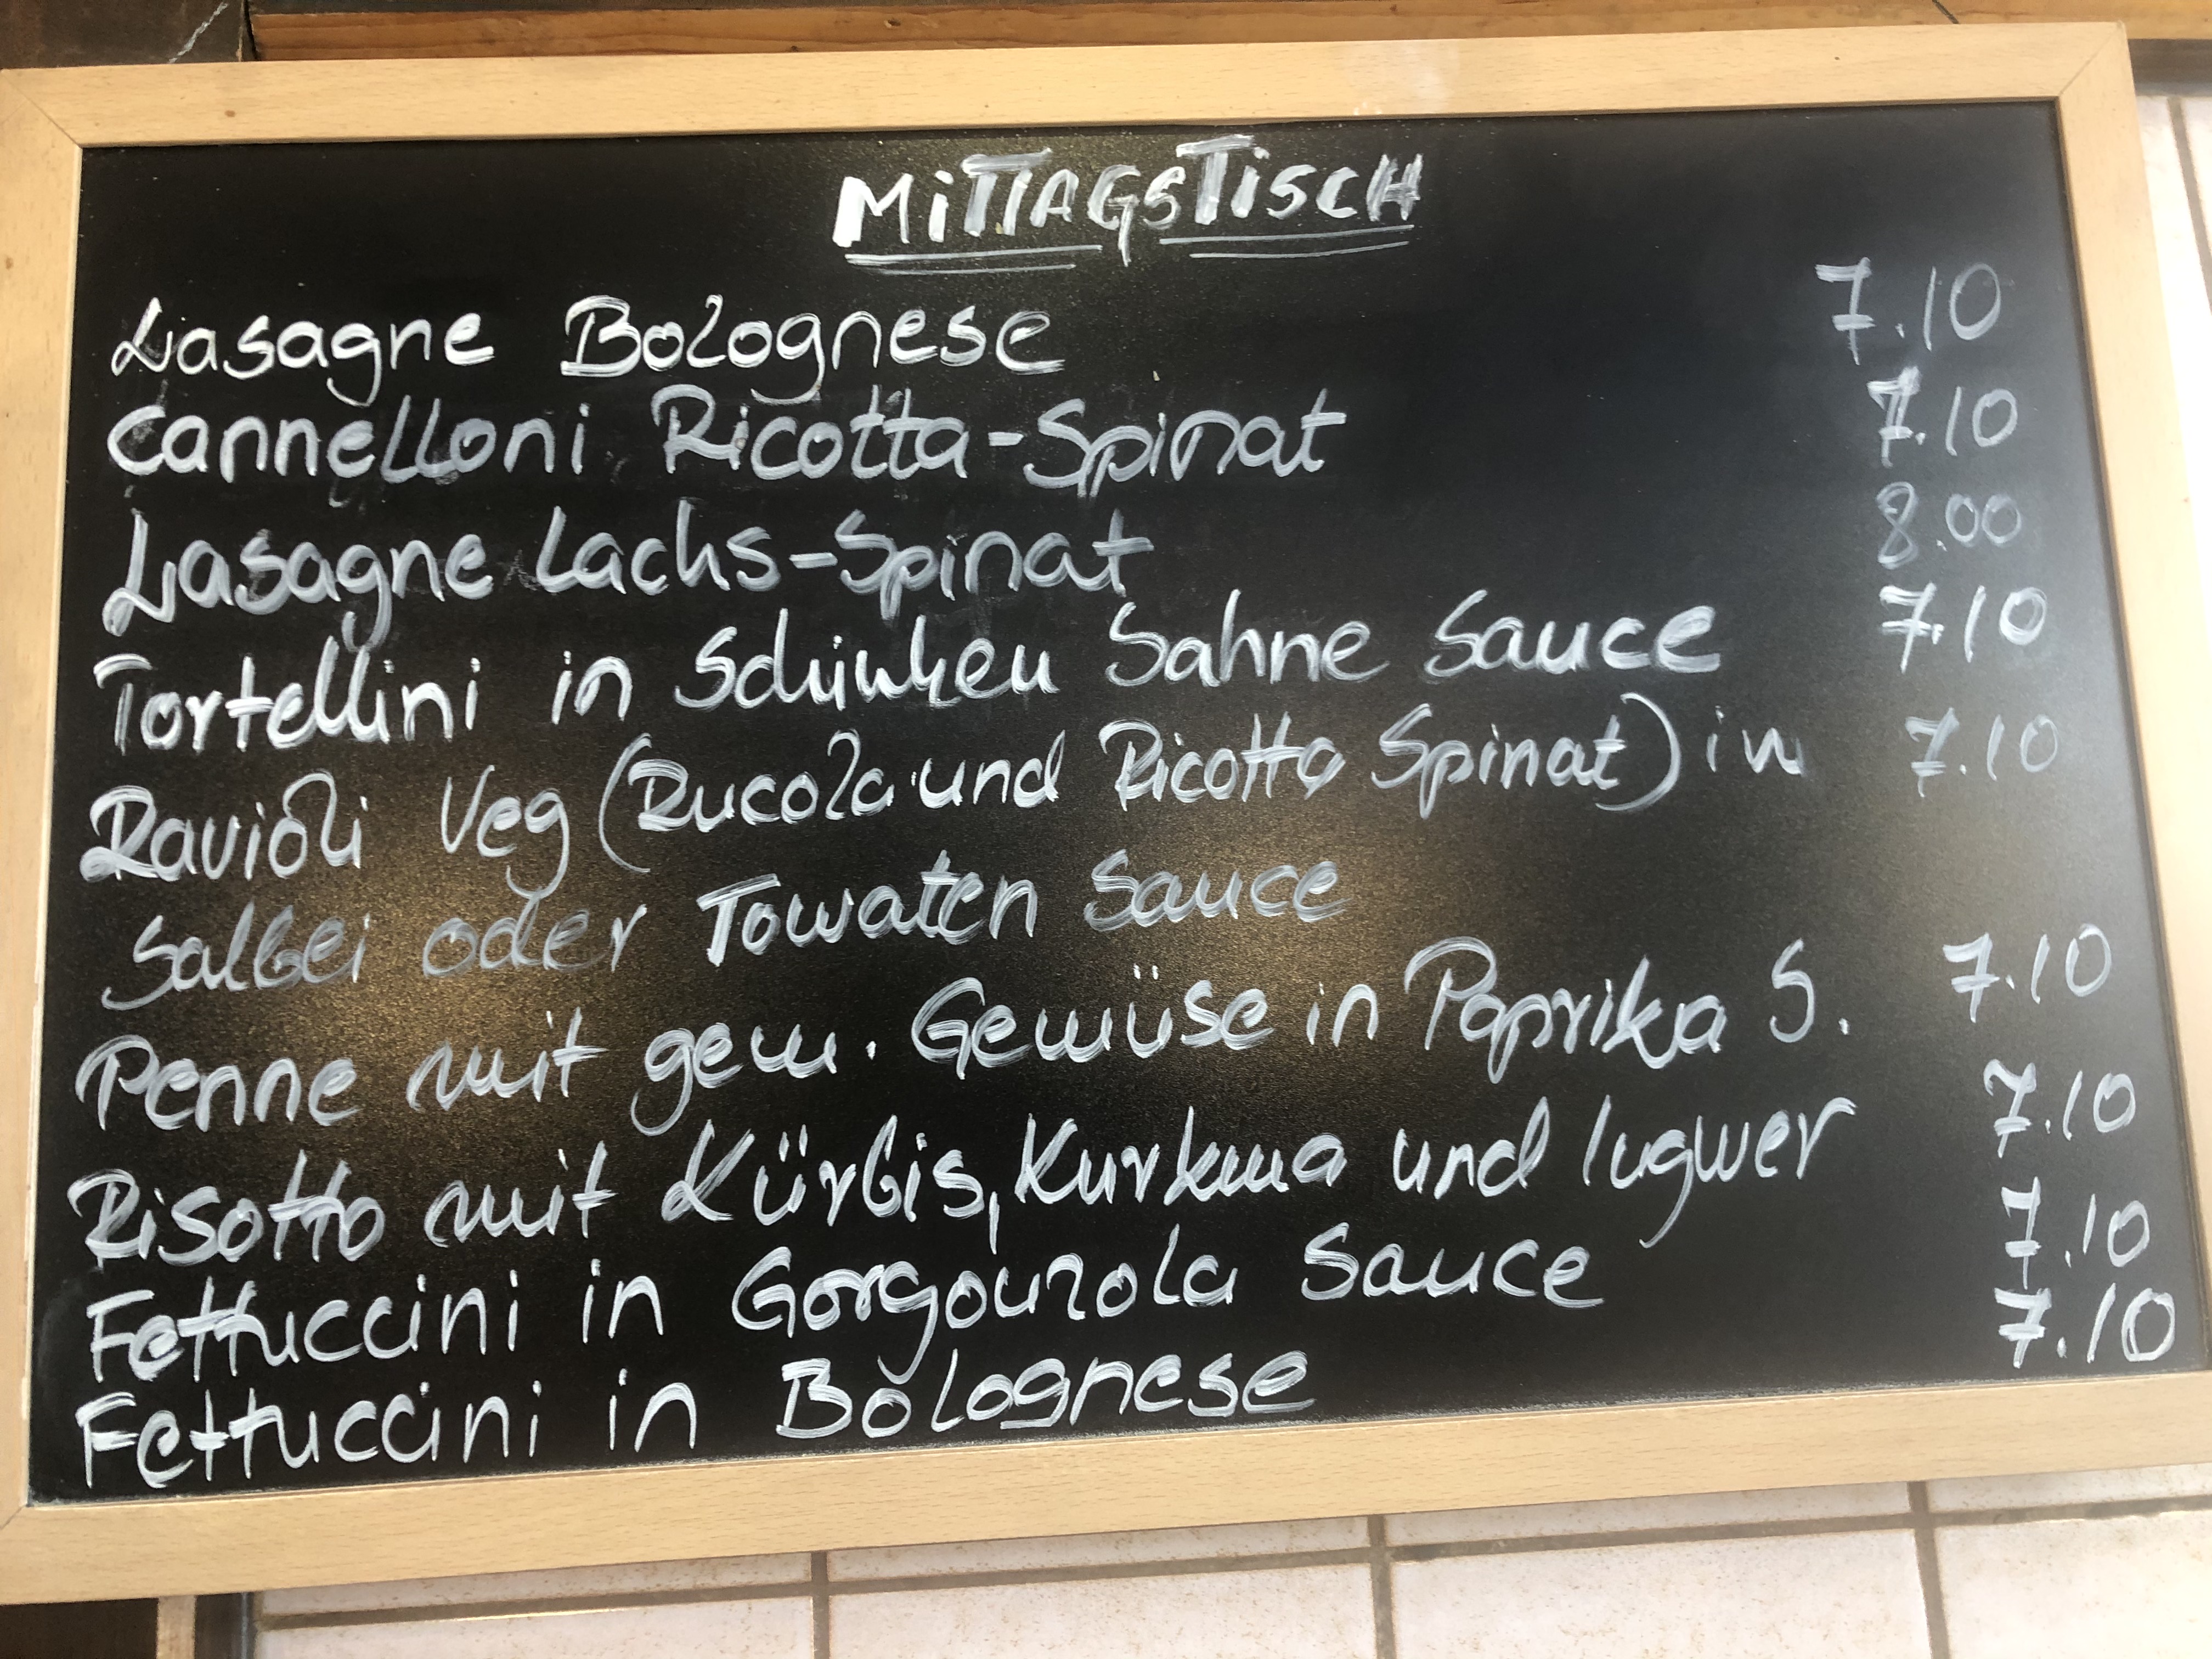 MiTTAGSTiSCH
Lasagne Bolognese 7.10
Cannelloni Ricotta-Spinat 7.10
Lasagne Lachs-Spinat 8.00
Tortellini in Schinken Sahne Sauce 7.10
Ravioli Veg (Rucola und Ricotta Spinat) in 7.10
Salbei oder Tomaten Sauce
Penne mit gem. Gemüse in Paprika S. 7.10
Risotto mit Kürbis, Kurkuma und Ingwer 7.10
Fettuccini in Gorgonzola Sauce 7.10
Fettuccini in Bolognese 7.10